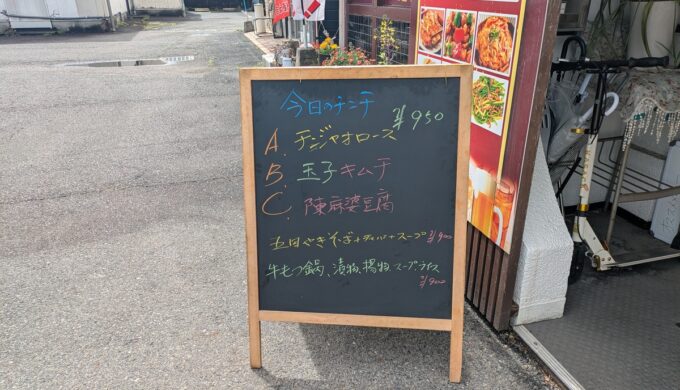 今日のチンチ
¥950
A. チンジャオロース
B. 玉子キムチ
C. 陳麻婆豆腐
五目やきそば+ティハン+スープ ¥900
牛もつ鍋、漬物、揚物、スープ、ライス
¥900